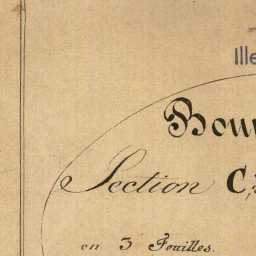 Ille
Bou
Section C,
en 3 Feuilles.